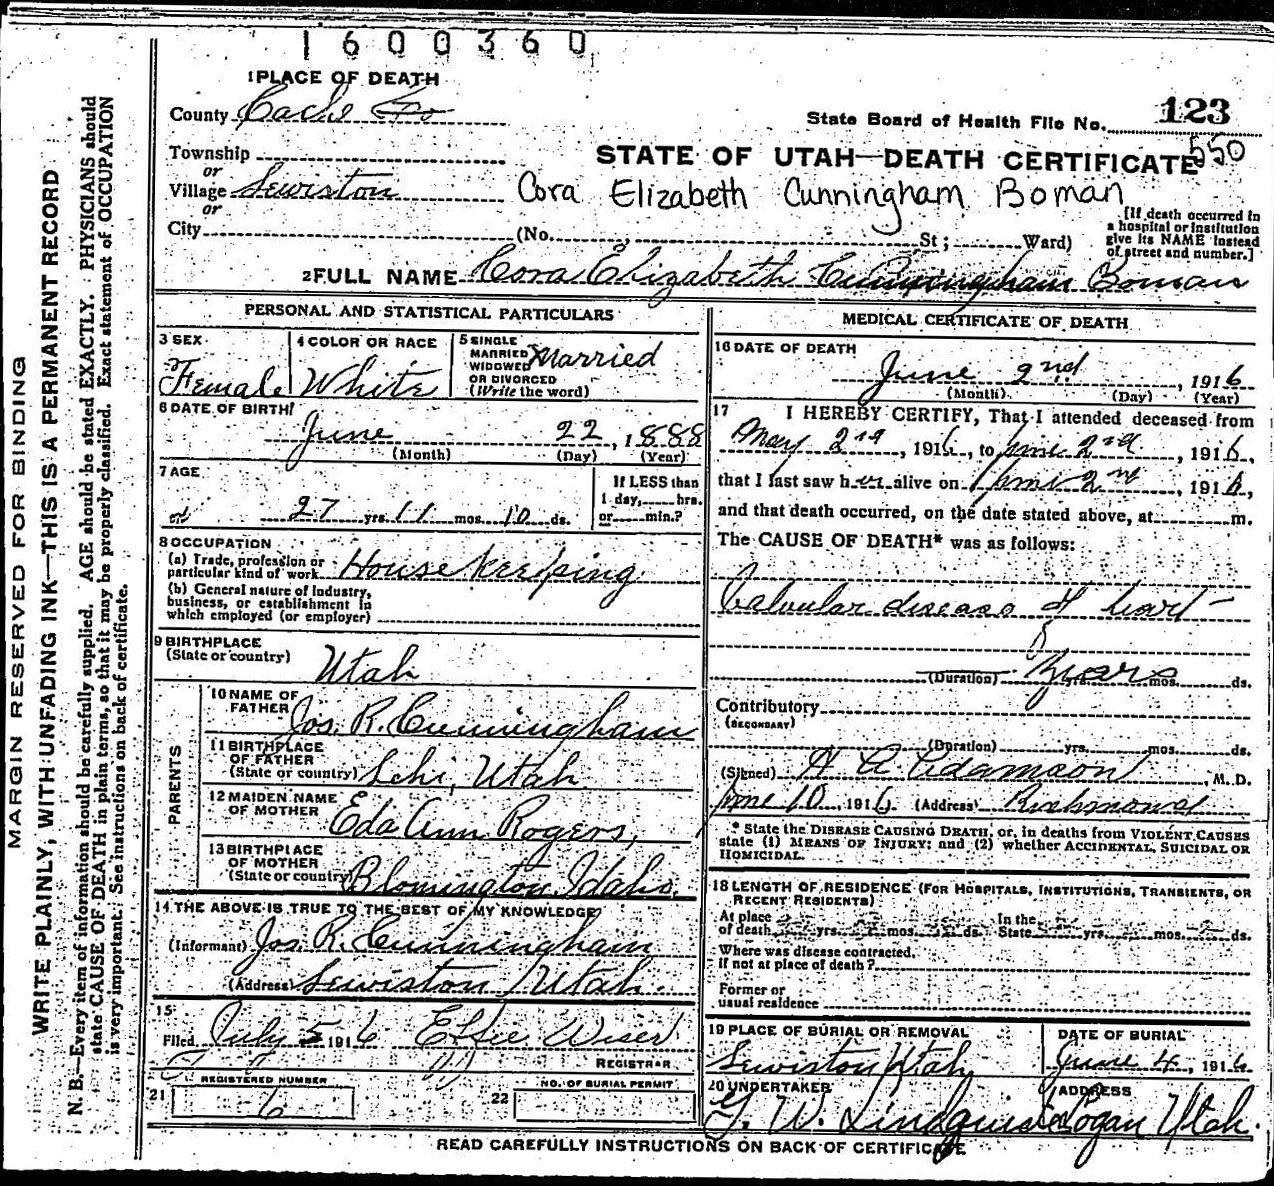 1600360
1 PLACE OF DEATH
County Cache Co
State Board of Health File No. 123
550
Township
or
Village Lewiston
or
City (No. St; Ward)
STATE OF UTAH—DEATH CERTIFICATE
Cora Elizabeth Cunningham Boman
[If death occurred in a hospital or institution give its NAME instead of street and number.]
2 FULL NAME Cora Elizabeth Cunningham Boman
PERSONAL AND STATISTICAL PARTICULARS
3 SEX Female
4 COLOR OR RACE White
5 SINGLE MARRIED WIDOWED OR DIVORCED (Write the word) Married
6 DATE OF BIRTH
June 22, 1888
(Month) (Day) (Year)
7 AGE
27 yrs. 11 mos. 10 ds.
If LESS than 1 day, hrs. or min.?
8 OCCUPATION
(a) Trade, profession or particular kind of work House keeping
(b) General nature of Industry, business, or establishment in which employed (or employer)
9 BIRTHPLACE
(State or country) Utah
PARENTS
10 NAME OF FATHER Jos. R. Cunningham
11 BIRTHPLACE OF FATHER (State or country) Lehi, Utah
12 MAIDEN NAME OF MOTHER Eda Ann Rogers,
13 BIRTHPLACE OF MOTHER (State or country) Blomington, Idaho.
14 THE ABOVE IS TRUE TO THE BEST OF MY KNOWLEDGE
(Informant) Jos. R. Cunningham
(Address) Lewiston Utah.
15
Filed July 5 1916 Effie Wiser
REGISTRAR
21 REGISTERED NUMBER
6
22 NO. OF BURIAL PERMIT
MEDICAL CERTIFICATE OF DEATH
16 DATE OF DEATH
June 2nd, 1916
(Month) (Day) (Year)
17 I HEREBY CERTIFY, That I attended deceased from
May 2nd, 1916, to June 2nd, 1916,
that I last saw her alive on June 2nd, 1916,
and that death occurred, on the date stated above, at m.
The CAUSE OF DEATH* was as follows:
Valvular disease of heart
(Duration) Years mos. ds.
Contributory
(SECONDARY)
(Duration) yrs. mos. ds.
(Signed) A. Adamson M. D.
June 10, 1916 (Address) Richmond
* State the DISEASE CAUSING DEATH, or, in deaths from VIOLENT CAUSES
state (1) MEANS OF INJURY; and (2) whether ACCIDENTAL, SUICIDAL OR
HOMICIDAL.
18 LENGTH OF RESIDENCE (FOR HOSPITALS, INSTITUTIONS, TRANSIENTS, OR
RECENT RESIDENTS)
At place of death yrs. mos. ds. In the State yrs. mos. ds.
Where was disease contracted,
If not at place of death?
Former or
usual residence
19 PLACE OF BURIAL OR REMOVAL
Lewiston Utah
DATE OF BURIAL
June 4, 1916
20 UNDERTAKER
W. Lindquist
ADDRESS
Logan Utah.
READ CAREFULLY INSTRUCTIONS ON BACK OF CERTIFICATE
MARGIN RESERVED FOR BINDING
WRITE PLAINLY, WITH UNFADING INK—THIS IS A PERMANENT RECORD
N. B.—Every item of information should be carefully supplied. AGE should be stated EXACTLY. PHYSICIANS should
state CAUSE OF DEATH in plain terms, so that it may be properly classified. Exact statement of OCCUPATION
is very important. See instructions on back of certificate.